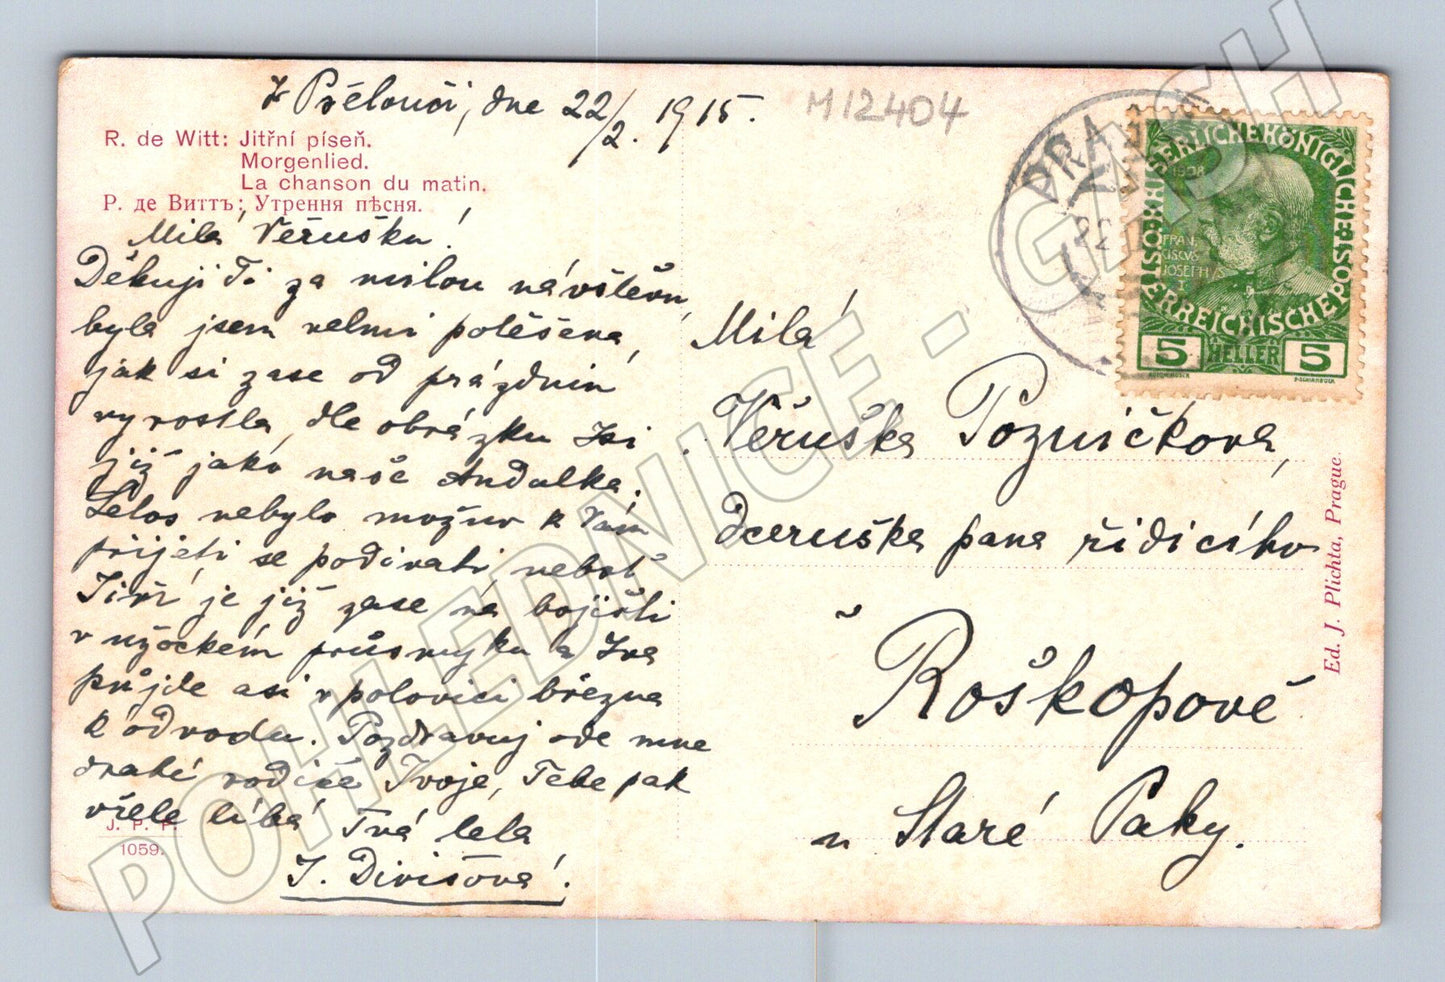 Z Přelouči, dne 22/2. 1915.
M12404
R. de Witt: Jitřní píseň.
Morgenlied.
La chanson du matin.
Р. де Виттъ: Утренняя пѣсня.
Milá Věruško!
Děkuji Ti za milou návštěvu,
byla jsem velmi potěšena,
jak si zase od prázdnin
vyrostla, dle obrázku jsi
již jako naše Andulka.
Letos nebylo možno k Vám
přijeti se podívati, neboť
Jiří je již zase na bojišti
v užockém průsmyku a Iva
půjde asi v polovici března
k odvodu. Pozdravuj ode mne
drahé rodiče Tvoje, Tebe pak
vřele líbá Tvá teta
J. Divišová.
J. P. P.
1059.
Milá
Věruška Pozničková,
dceruška pana řídícího
v Roškopově
u Staré Paky.
Ed. J. Plichta, Prague.
KAISERLICHE KÖNIGLICHE ÖSTERREICHISCHE POST
FRAN
CISCVS
JOSEPHVS
I
5 HELLER 5
PRA
22
POHLEDNICE - GASH